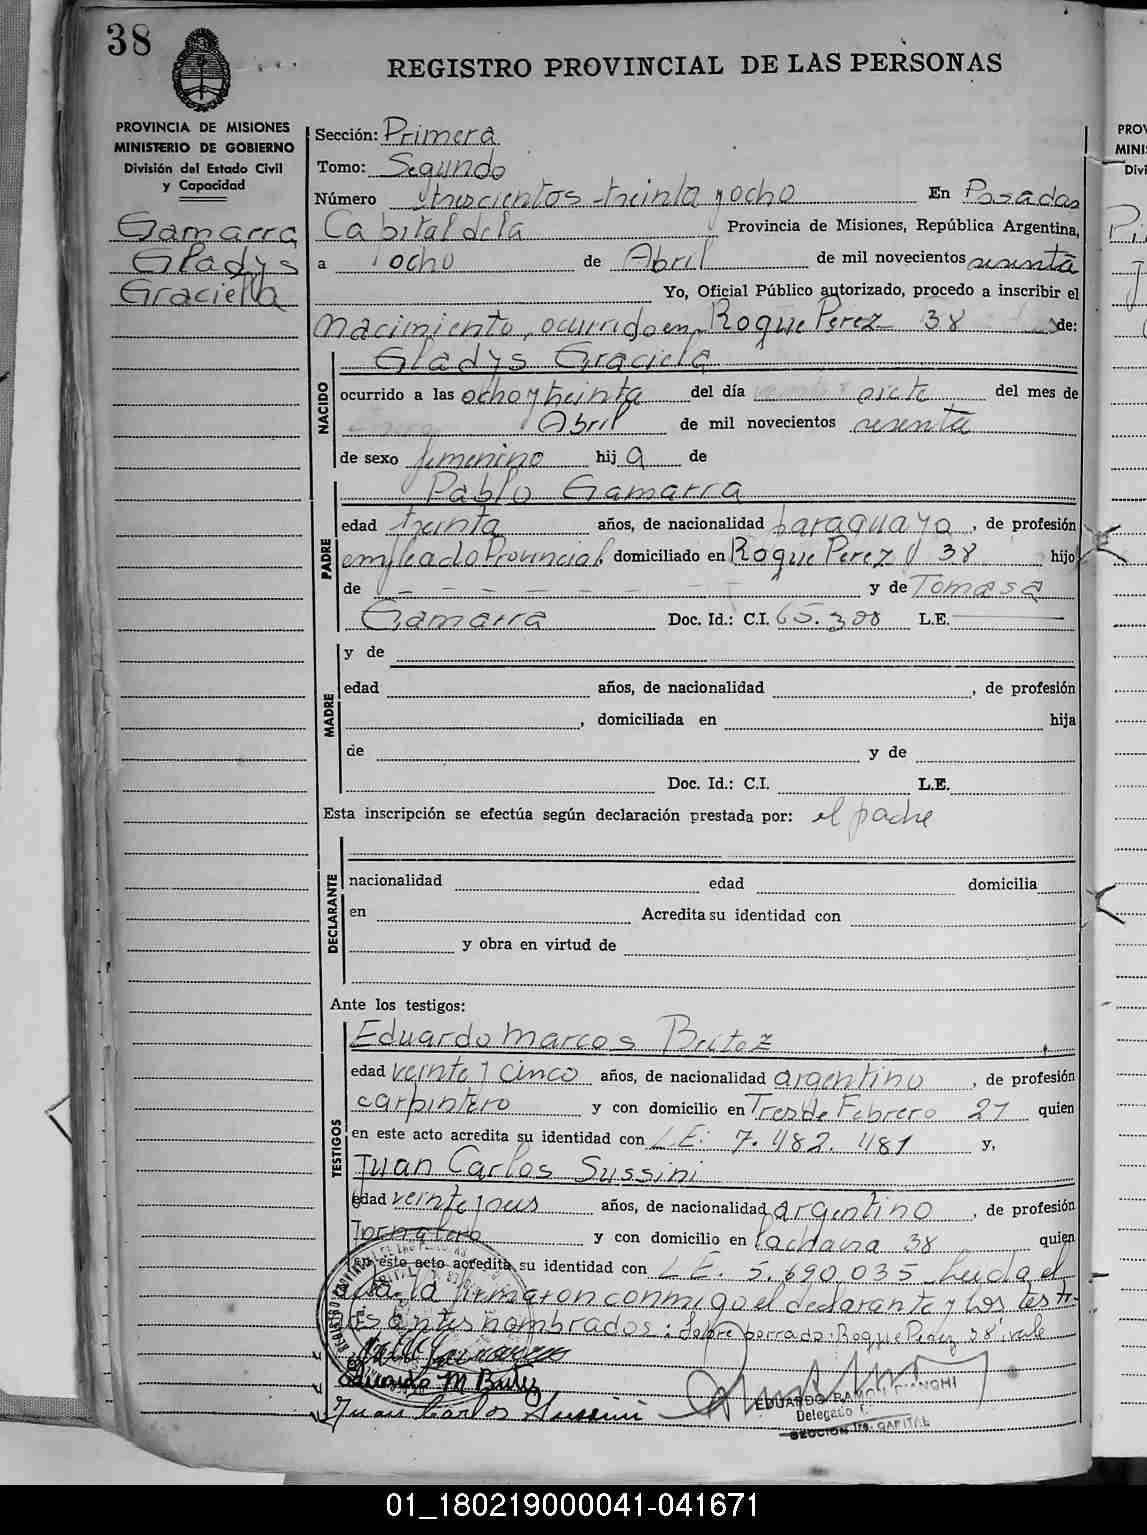 38
REGISTRO PROVINCIAL DE LAS PERSONAS
PROVINCIA DE MISIONES
MINISTERIO DE GOBIERNO
División del Estado Civil
y Capacidad
Gamarra
Gladys
Graciela
Sección: Primera
Tomo: Segundo
Número trescientos treinta y ocho En Posadas
Capital de la Provincia de Misiones, República Argentina,
a ocho de Abril de mil novecientos sesenta
Yo, Oficial Público autorizado, procedo a inscribir el
nacimiento, ocurrido en Roque Perez 38 de:
NACIDO
Gladys Graciela
ocurrido a las ocho y treinta del día siete del mes de
Abril de mil novecientos sesenta
de sexo femenino hij a de
PADRE
Pablo Gamarra
edad treinta años, de nacionalidad paraguayo, de profesión
empleado Provincial, domiciliado en Roque Perez 38 hijo
de - - - - - - y de Tomasa
Gamarra Doc. Id.: C.I. 65.308 L.E.
MADRE
y de
edad años, de nacionalidad , de profesión
, domiciliada en hija
de y de
Doc. Id.: C.I. L.E.
Esta inscripción se efectúa según declaración prestada por: el padre
DECLARANTE
nacionalidad edad domicilia
en Acredita su identidad con
y obra en virtud de
Ante los testigos:
TESTIGOS
Eduardo Marcos
edad veinte y cinco años, de nacionalidad argentino, de profesión
carpintero y con domicilio en Tres de Febrero 27 quien
en este acto acredita su identidad con L.E: 7.482.481 y,
Juan Carlos Sussini
edad veinte y años, de nacionalidad argentino, de profesión
Tornalero y con domicilio en 38 quien
en este acto acredita su identidad con L.E. 5.690.035 leida el
acta, la firmaron conmigo el declarante y los tes ti-
gos antes nombrados: sobre borrado: Roque Perez 38: vale
Eduardo M
Juan Carlos Sussini
EDUARDO RAMON BIANGHI
Delegado
SECCION 1ra. CAPITAL
PROV
MINI
Divi
01_180219000041-041671